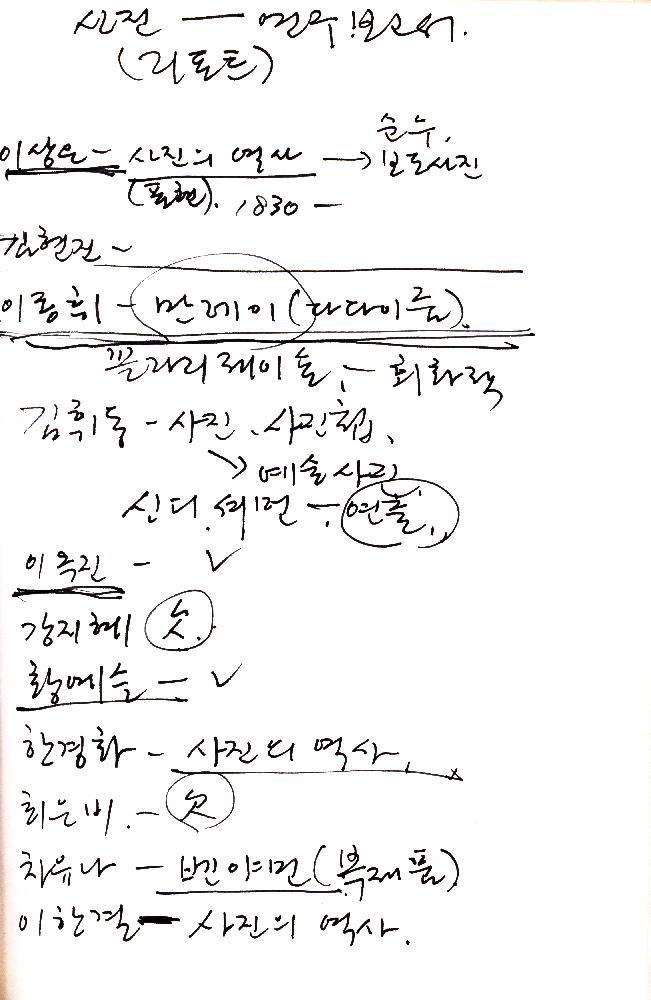 사진 — 연구보고서.
(리포트)
순수,
이상은 - 사진의 역사 → 보도사진
(표현). 1830 —
김현진 ~
이광휘 - 만레이 (다다이즘).
폴라리제이숀, - 회화적
김휘동 - 사진, 사진첩,
↘ 예술사진
신디.셔먼 - 연출,
이옥진 - ✓
강지혜 欠.
황예슬 - ✓
한경화 - 사진의 역사.
최은비. - 欠
차유나 - (복제품)
이한결 - 사진의 역사.